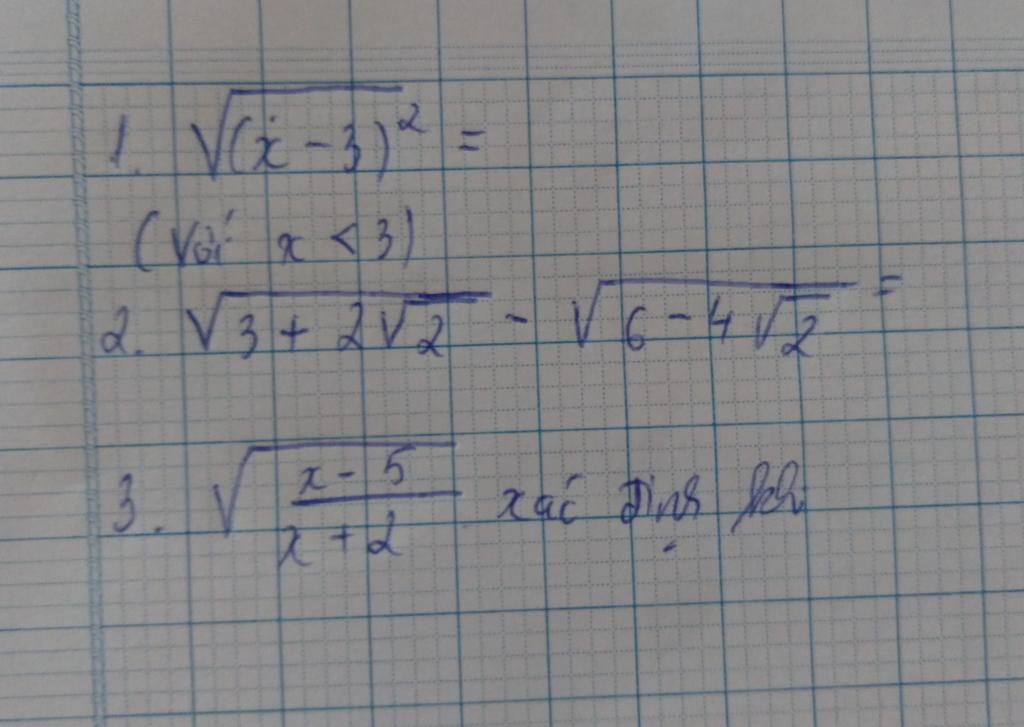 1. √(x - 3)² =
(Với x < 3)
2. √(3 + 2√2) - √(6 - 4√2) =
3. √((x - 5)/(x + 2)) xác định khi